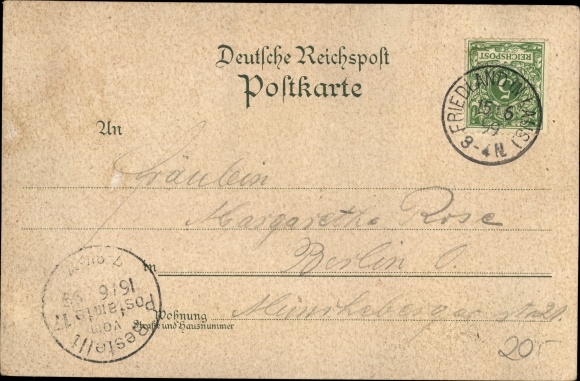 Deutsche Reichspost
Postkarte
REICHSPOST
5
FRIEDLAND
15 6
99
3-4 N.
An
Fräulein
Margarethe Rose
in Berlin O.
Wohnung
Straße und Hausnummer
Münchebergerstr 21.
20.-
Bestellt
vom
Postamte 17
16/6 99